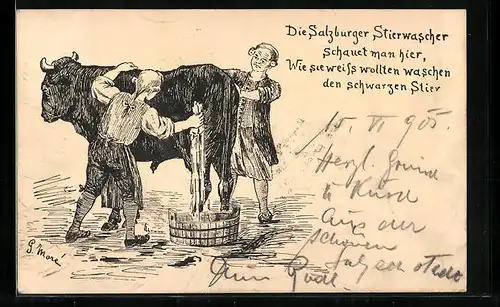 Die Salzburger Stierwascher
schauet man hier,
Wie sie weiss wollten waschen
den schwarzen Stier
15. VI 905.
Herzl.
Aus der
schönen
G. Moré